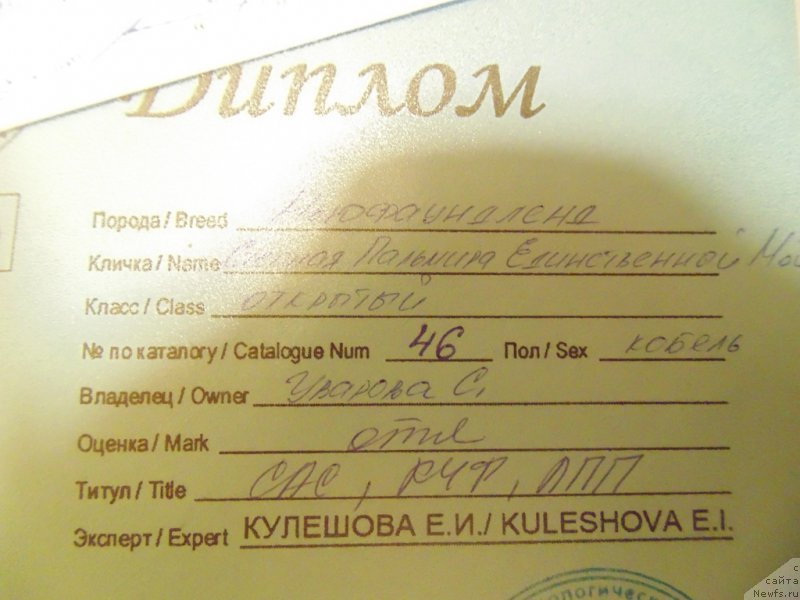 Диплом
Порода / Breed Ньюфаундленд
Кличка / Name Пальмира Единственной Мо
Класс / Class открытый
№ по каталогу / Catalogue Num 46 Пол / Sex кобель
Владелец / Owner Уварова С.
Оценка / Mark отл
Титул / Title САС, КЧФ, ЛПП
Эксперт / Expert КУЛЕШОВА Е.И./ KULESHOVA E.I.
ологическ
с
сайта
Newfs.ru